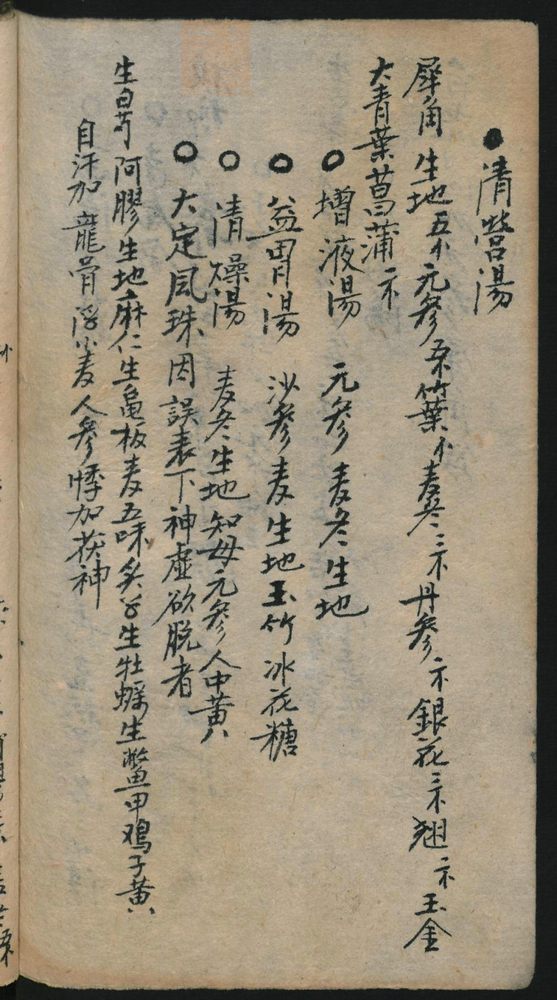 ●清营湯
犀角 生地五小元參 竹葉小麦冬三 丹參二 銀花三 翘二 玉金
大青葉菖蒲
○增液湯 元參麦冬生地
○益胃湯 沙參麦生地玉竹冰花糖
○清燥湯 麦冬生地知母元參人中黄
○大定風珠因誤表下神虚欲脫者
生白芍阿膠生地麻仁生龟板麦五味炙草生牡蠣生鳖甲鸡子黄
自汗加龍骨浮小麦人參悸加茯神